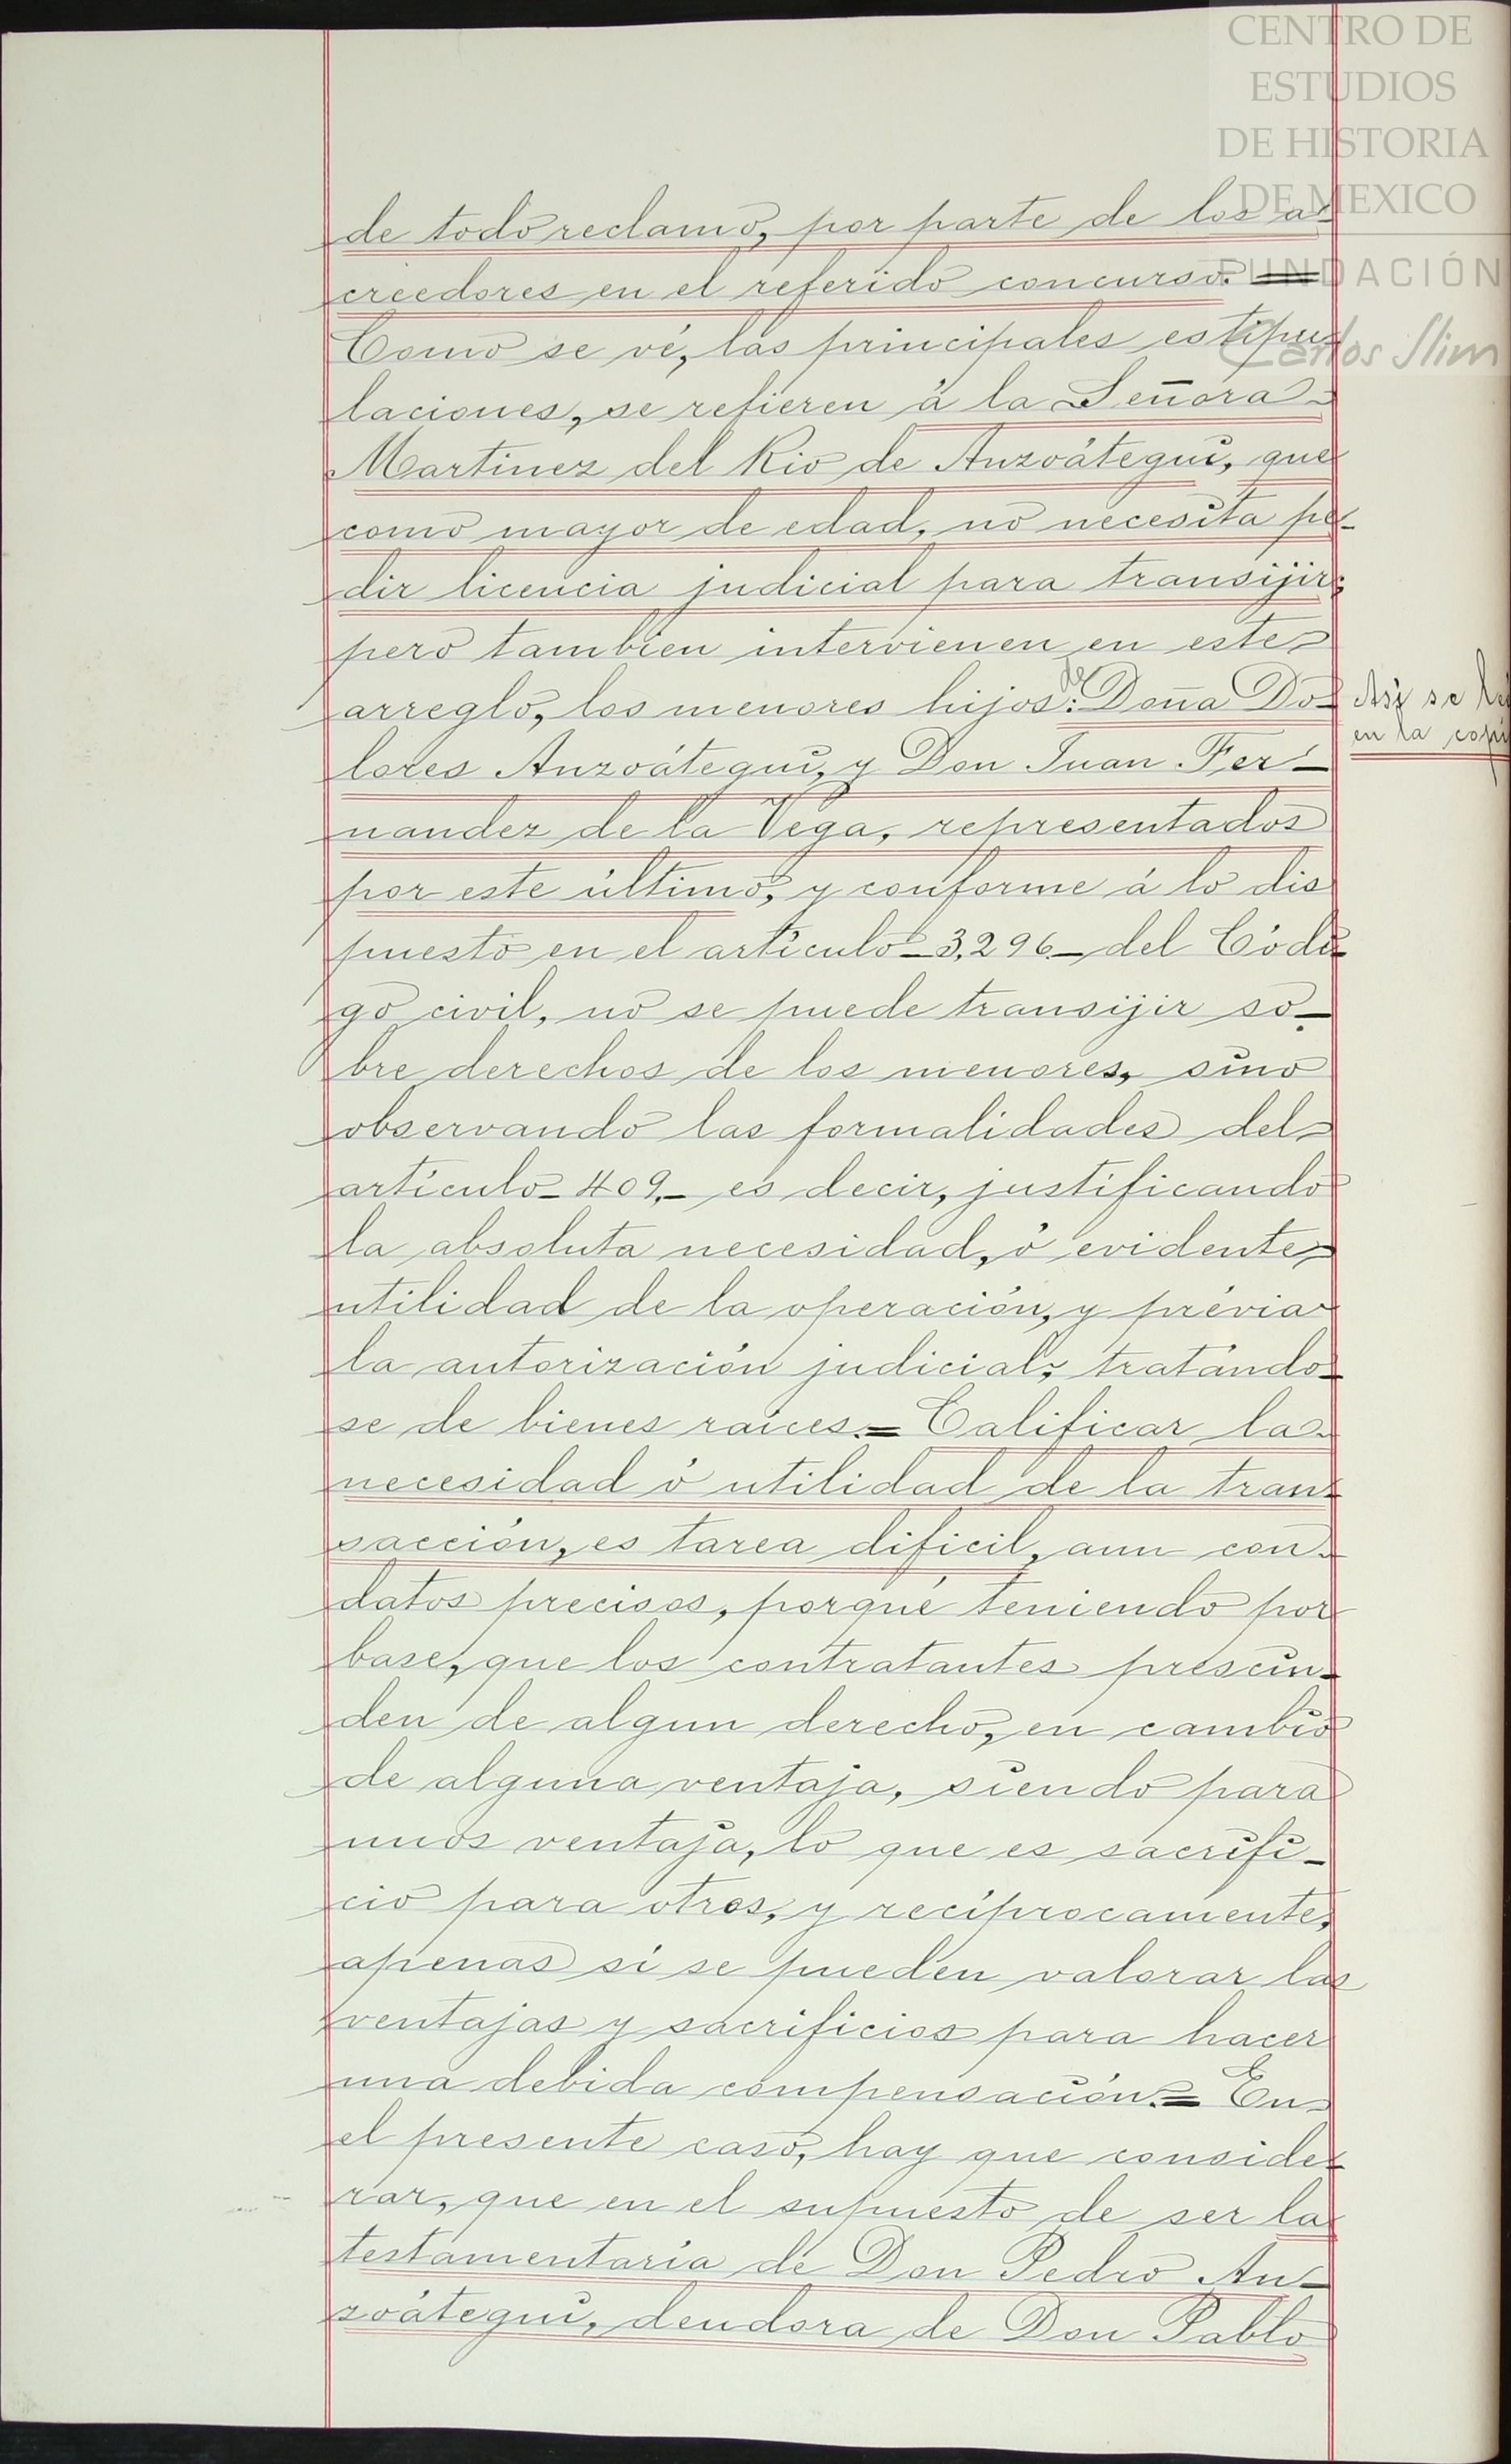 CENTRO DE
ESTUDIOS
DE HISTORIA
DE MEXICO
FUNDACIÓN
Carlos Slim
de todo reclamo, por parte de los a-
creedores en el referido concurso. =
Como se vé, las principales estipu-
laciones, se refieren á la Señora
Martinez del Rio de Anzoátegui, que
como mayor de edad, no necesita pe-
dir licencia judicial para transijir;
pero tambien intervienen en este
arreglo, los menores hijos de Doña Do-
lores Anzoátegui, y Don Juan Fer-
nandez de la Vega, representados
por este último, y conforme á lo dis
puesto en el artículo_3,296_del Códi-
go civil, no se puede transijir so-
bre derechos de los menores, sino
observando las formalidades del
artículo_409,_es decir, justificando
la absoluta necesidad, ó evidente
utilidad de la operación, y prévia
la autorización judicial, tratándo-
se de bienes raíces.= Calificar la
necesidad ó utilidad de la tran-
sacción, es tarea dificil, aun con
datos precisos, porqué teniendo por
base, que los contratantes prescin-
den de algun derecho, en cambio
de alguna ventaja, siendo para
unos ventaja, lo que es sacrifi-
cio para otros, y recíprocamente,
apenas si se pueden valorar las
ventajas y sacrificios para hacer
una debida compensación.= En
el presente caso, hay que conside-
rar, que en el supuesto de ser la
testamentaría de Don Pedro An-
zoátegui, deudora de Don Pablo
Así se
en la